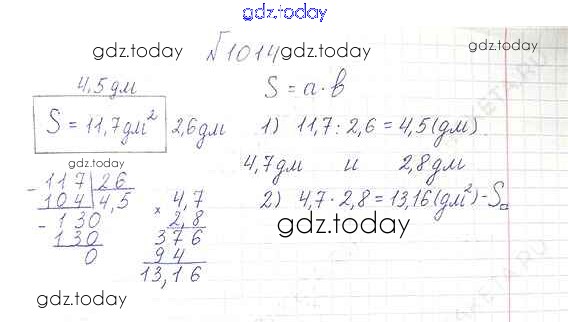 gdz.today
№1014
gdz.today
gdz.today
4,5 дм
S = a · b
S = 11,7 дм²
2,6 дм
1) 11,7 : 2,6 = 4,5 (дм)
gdz.today
4,7 дм и 2,8 дм
117 | 26
- 104 | 4,5
- 130
130
0
2) 4,7 · 2,8 = 13,16 (дм²) - S
4,7
× 2,8
376
94
13,16
gdz.today
gdz.today